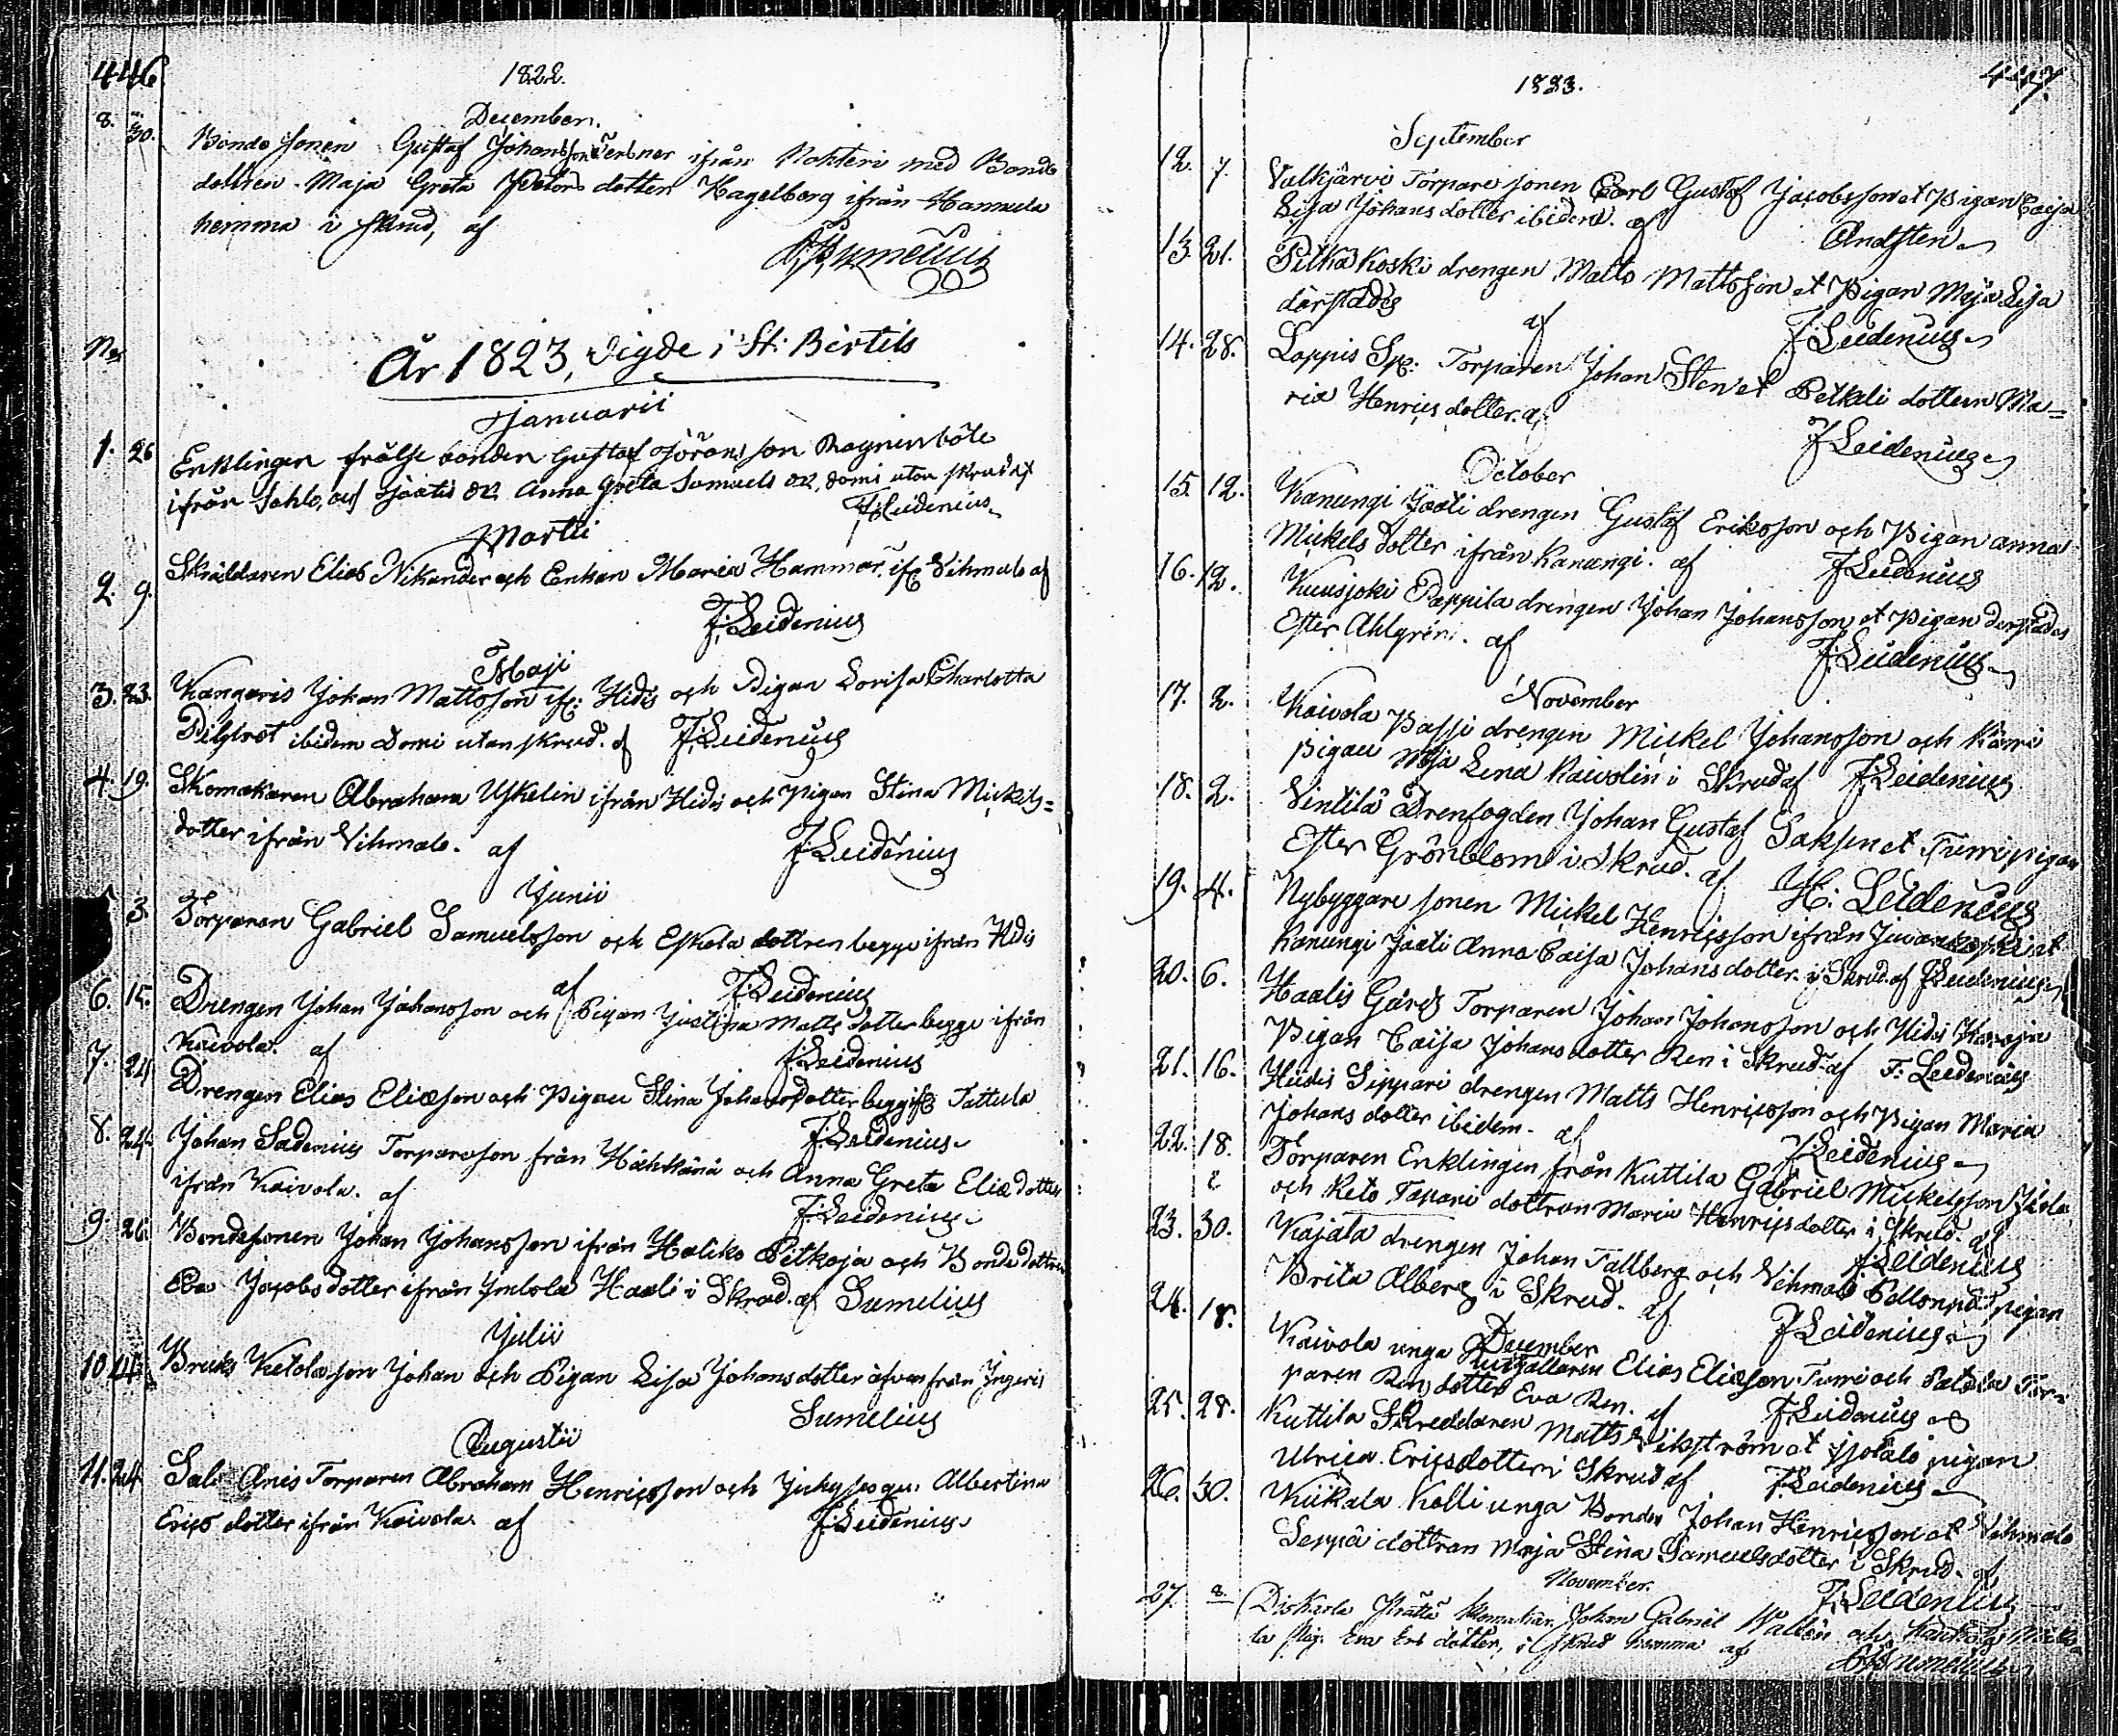 446
1822.
December.
8. 30. Bonde sonen Gustaf Johansson ifrån Nokteri med Bonde
dottren Maja Greta dotter Hagelberg ifrån Hannula
hemma i skrud, af
Sumelius
No
År 1823, Vigde i St: Bertils
Januarii
1. 26 Enklingen frälse bonden Gustaf Jöransson
ifrån och Anna Greta Samuels dr, domi utan skrud af
F: Leidenius
Martii
2. 9. Skräddaren Elias Nikander och Enkan Maria Hammar ifr: Vihmalo af
F: Leidenius
Maji
3. 23. Kangaris Johan Mattsson ifr: Hidis och Pigan Lovisa Charlotta
ibidem Domi utan skrud. af F: Leidenius
4. 19. Skomakaren Abraham Uskelin ifrån Hidis och Pigan Stina Mickels=
dotter ifrån Vihmalo. af F: Leidenius
Junii
5 3. Torparen Gabriel Samuelsson och Eskola dottren begge ifrån Hidis
af F: Leidenius
6. 15. Drengen Johan Johansson och Pigan Justina Matts dotter begge ifrån
Kaivola. af F: Leidenius
7. 24 Drengen Elias Eliæson och Pigan Stina Johansdotter begge ifr: Tattula
F: Leidenius
8. 24. Johan Sadenius Torpareson från Häntkänä och Anna Greta Eliæ dotter
ifrån Kaivola. af F: Leidenius
9. 26. Bondesonen Johan Johansson ifrån Haliko Pitkoja och Bonde dottren
Eva Jacobs dotter ifrån Ymbola Haali i Skrud. af Sumelius
Julii
10 14. Bruks Ketola son Johan och Pigan Lisa Johansdotter äfven från Yngeris
Sumelius
Augustii
11. 24 Salo Anis Torparen Abraham Henricsson och pigan Albertina
Erics dotter ifrån Kaivola. af F: Leidenius
447.
1823.
September
12. 7. Valkjärvi Torpare sonen Carl Gustaf Jacobsson et Pigan Caisa
Lisa Johans dotter ibidem. af Andsten
13. 21. Pitkä Koski drengen Matts Mattsson et Pigan Maja Lisa
därstädes af F: Leidenius
14. 28. Loppis Sp: Torparen Johan Sten et Petkeli dottern Ma=
ria Henrics dotter. af F: Leidenius
October
15. 12. Kanungi Jaali drengen Gustaf Eriksson och Pigan Anna
Mickels dotter ifrån Kanungi. af F: Leidenius
16. 12. Kuusjoki Pappila drengen Johan Johansson et Pigan derstädes
Ester Ahlgren. af F: Leidenius
November
17. 2. Kaivola Passi drengen Mickel Johansson och
pigan Maja Lena Kaivolin i Skrud af F: Leidenius
18. 2. Vintilä Drenfogden Johan Gustaf Saksen et Turri pigan
Ester Grönblom i Skrud. af H: Leidenius
19. 4. Nybyggare sonen Mickel Henricsson ifrån et
Kanungi Jaali Anna Caisa Johans dotter. i Skrud. af F: Leidenius
20. 6. Haalis Gärds Torparen Johan Johansson och Hidis
Pigan Caisa Johansdotter Ren i Skrud. af F: Leidenius
21. 16. Hidis Sippari drengen Matts Henricsson och Pigan Maria
Johans dotter ibidem. af F: Leidenius
22. 18. Torparen Enklingen från Kuttila Gabriel Mickelsson
och Keto Tapani dottran Maria Henricsdotter i Skrud. af
F: Leidenius
23. 30. Kajala drengen Johan Tallberg och Vihmalo pigan
Brita Alberg i Skrud. af F: Leidenius
December
24. 18. Kaivola unga Elias Eliæson Turri och Tor=
paren Ren dotter Eva Ren. af F: Leidenius
25. 28. Kuttila Skreddaren Matts Vikström et pigan
Ulrica Ericsdotter i Skrud af F: Leidenius
26. 30. Kiikala Kolli unga Bonden Johan Henricsson et Vihmalo
Seppä dottran Maja Stina Samuelsdotter i Skrud. af
F: Leidenius
November.
27. 8. Johan Gabriel Wallin och
Pig. Eva dotter, i Skrud hemma af
Sumelius